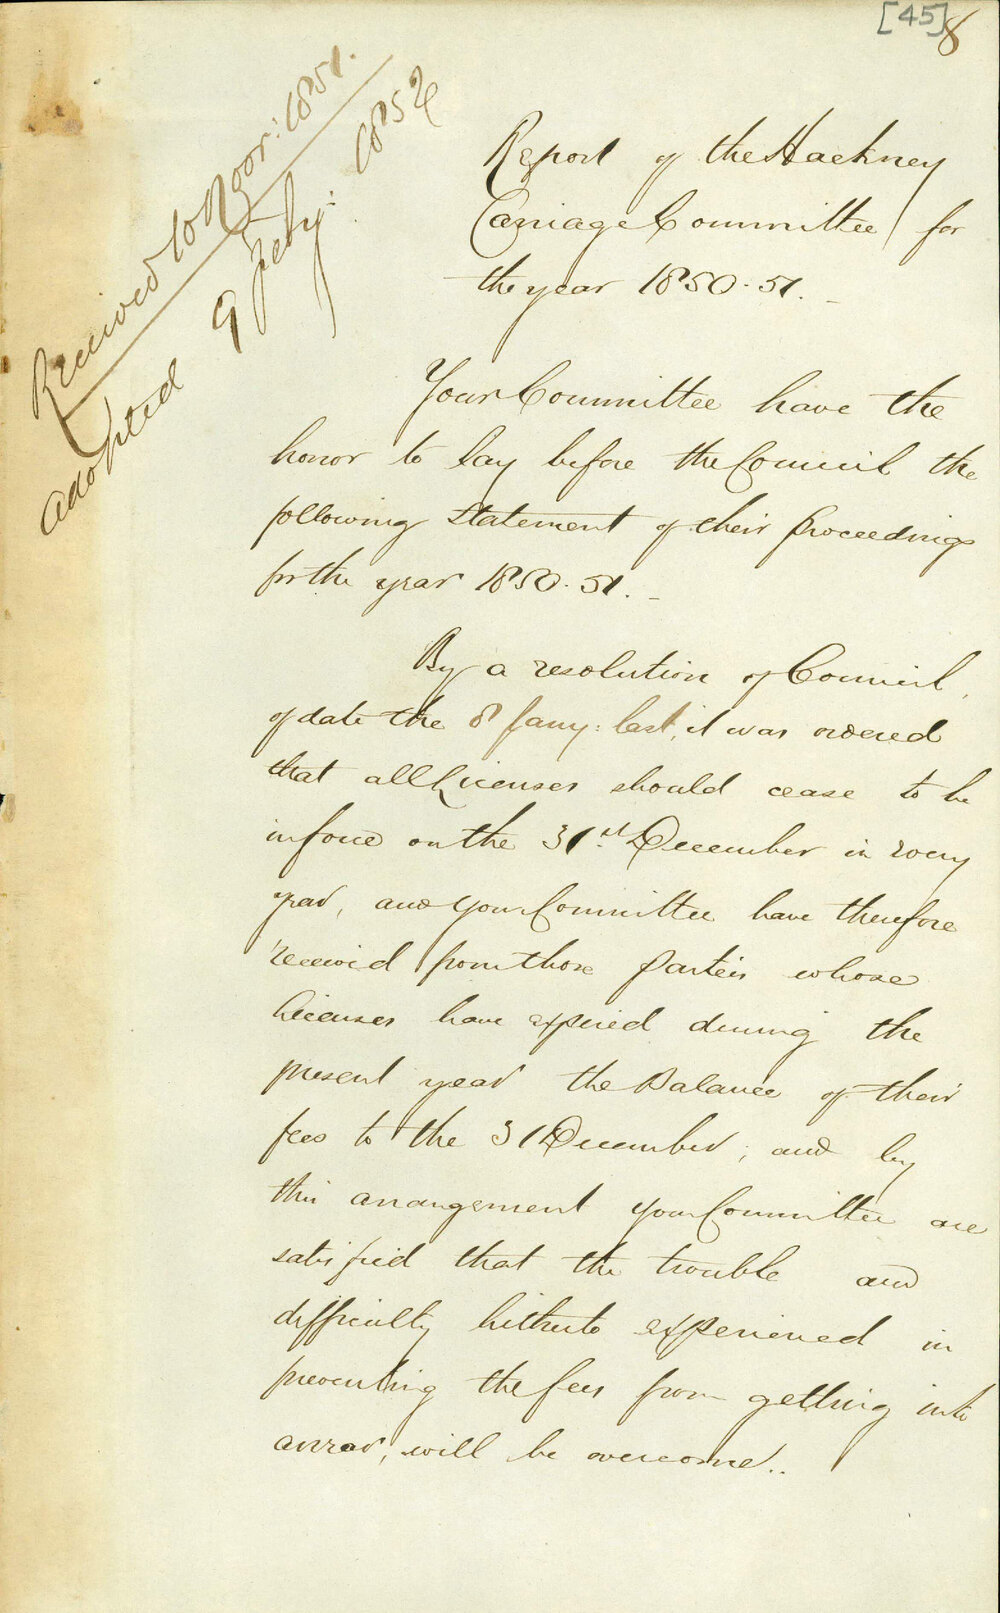 [45] 8
Received 10 Novr: 1851.
Adopted 9 Feby: 1852
Report of the Hackney
Carriage Committee for
the year 1850.51.
Your Committee have the
honor to lay before the Council the
following statement of their proceedings
for the year 1850.51.
By a resolution of Council,
of date the 8 Jany: last, it was ordered
that all Licenses should cease to be
in force on the 31st December in every
year, and your Committee have therefore
received from those parties whose
Licenses have expired during the
present year the Balance of their
fees to the 31 December; and by
this arrangement your Committee are
satisfied that the trouble and
difficulty hitherto experienced in
preventing the fees from getting into
arrear, will be overcome..